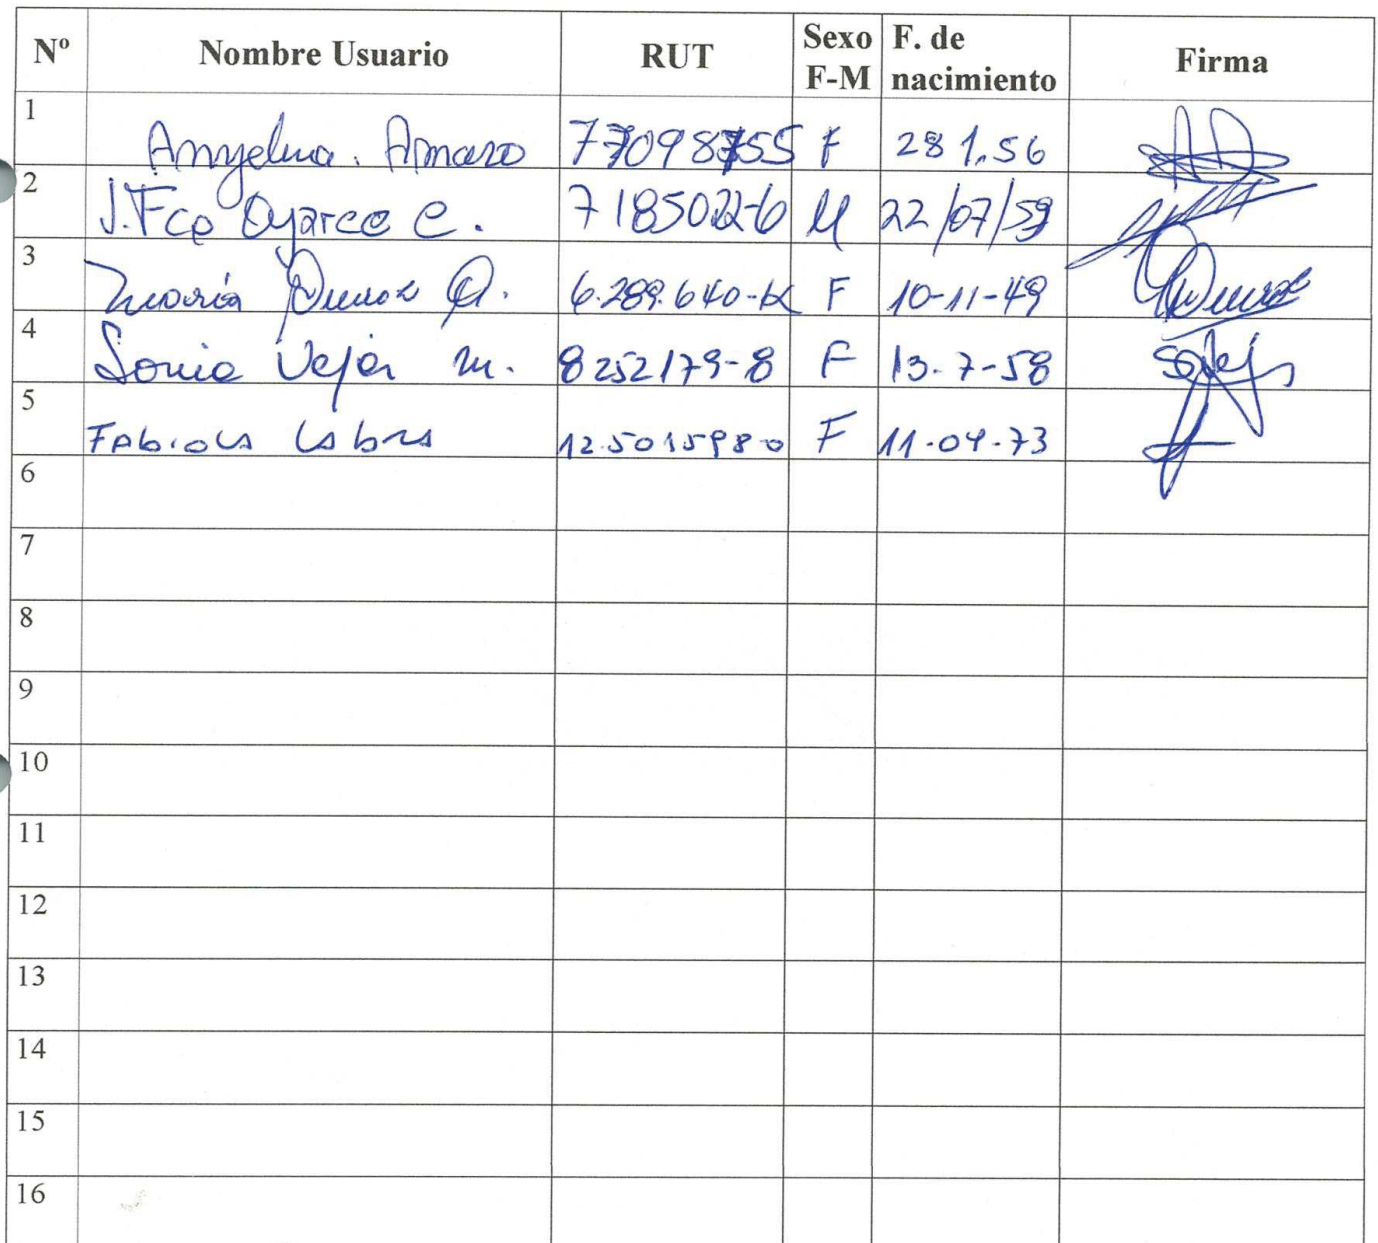 Nº Nombre Usuario RUT Sexo F-M F. de nacimiento Firma
1 Amaro F 28 1.56
2 J. Fco Oyarce C. 7185022-6 M 22/07/59
3 María Q. 6.289.640-K F 10-11-49
4 Sonia Vejar M. 8252179-8 F 13-7-58
5 Fabiola Labra 12.501598-0 F 11-04-73
6
7
8
9
10
11
12
13
14
15
16